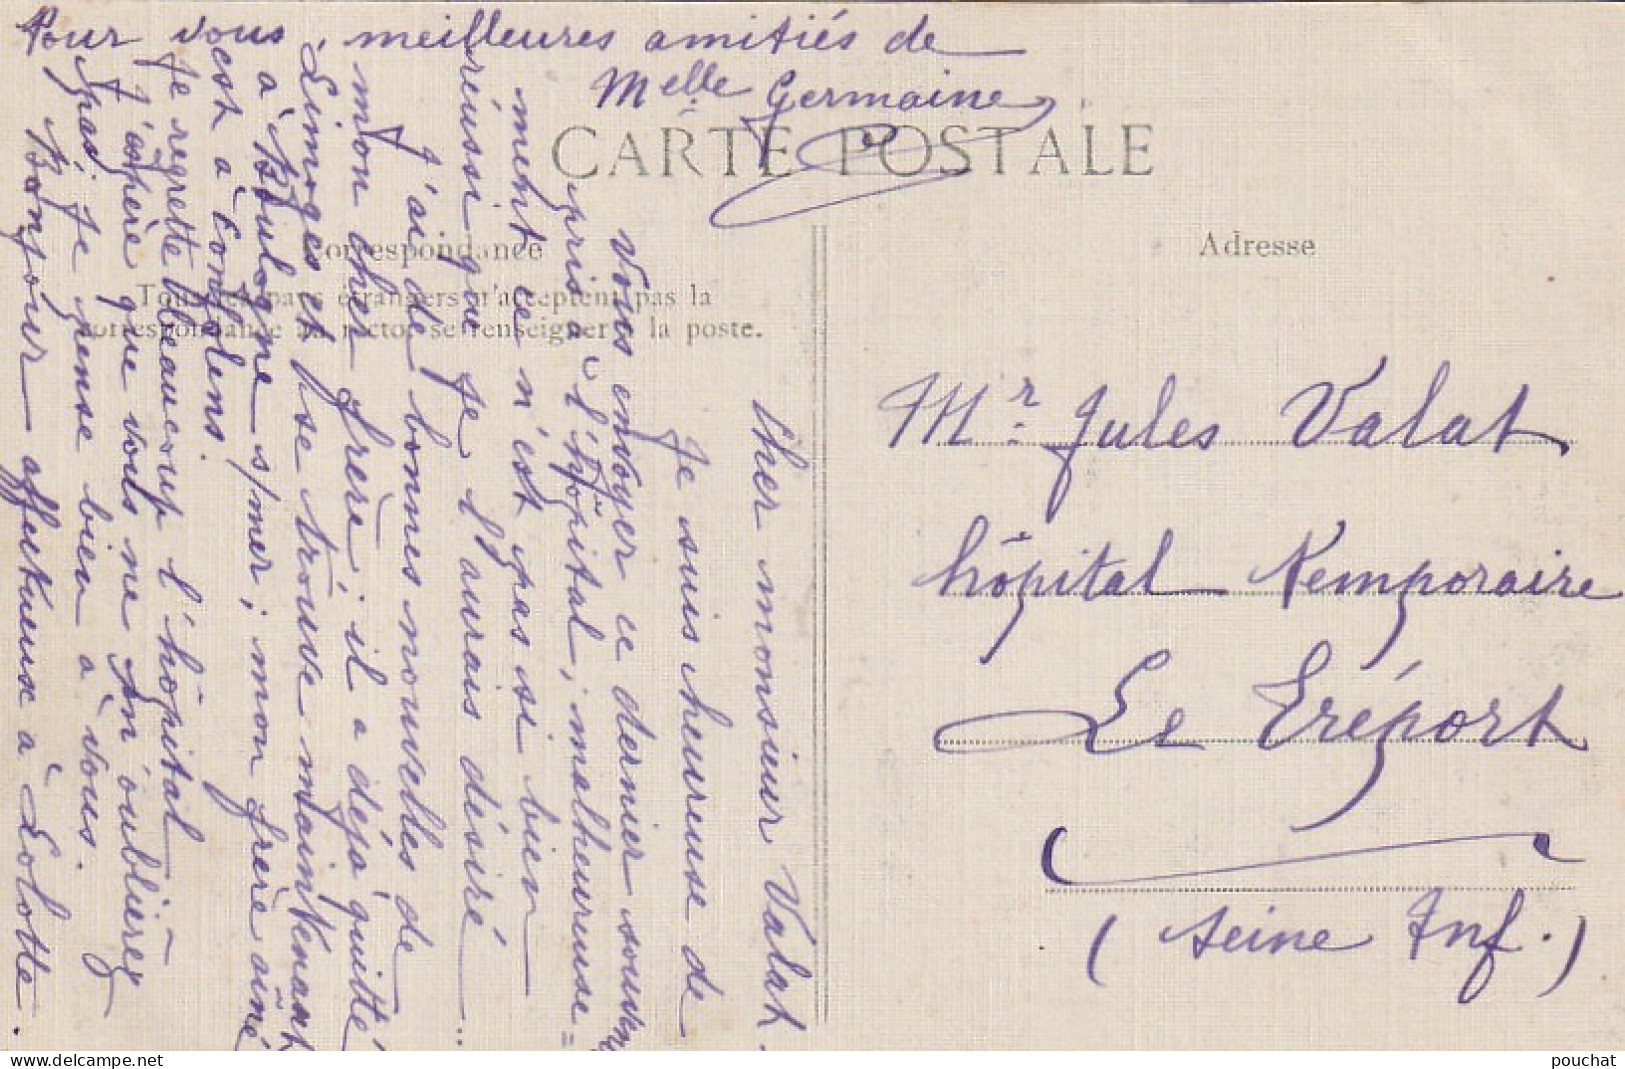 Pour vous, meilleures amitiés de
Melle Germaine
CARTE POSTALE
Correspondance
Tous les pays étrangers n'acceptent pas la
correspondance au recto, se renseigner à la poste.
Adresse
Mr. Jules Valat
hôpital Temporaire
Le Tréport
(Seine Inf.)
Cher monsieur Valat.
Je suis heureuse de
vous envoyer ce dernier souvenir
pris à l'hôpital, malheureuse=
ment ce n'est pas si bien
réussi que je l'aurais désiré..
J'ai de bonnes nouvelles de
mon cher frère, il a déjà quitté
Limoges et se trouve maintenant
à Boulogne s/mer; mon frère aîné
est à Confolens.
Je regrette beaucoup l'hôpital -
j'espère que vous ne m'oublierez
pas; je pense bien à vous.
Bonjour affectueux à Lolotte.
www.delcampe.net
pouchat